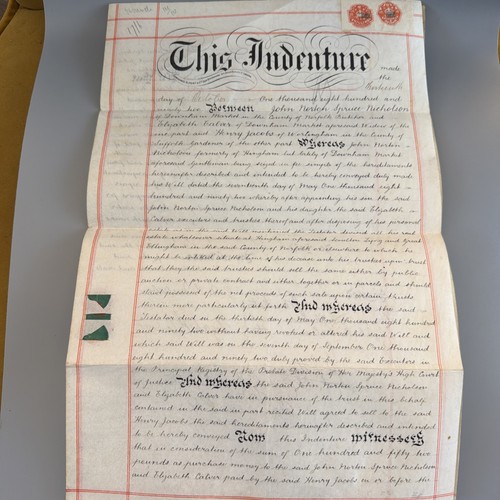 This Indenture made
the thirteenth
day of October One thousand eight hundred and
ninety two Between John Norton Spruce Nicholson
of Downham Market in the County of Norfolk and
Elizabeth Calver of Downham Market aforesaid Widow of the
one part and Henry Jacobs of Worlingham in the County of
Suffolk Gardener of the other part Whereas John Norton
Nicholson formerly of Hingham but lately of Downham Market
aforesaid Gentleman being seized in fee simple of the hereditaments
hereinafter described and intended to be hereby conveyed duly made
his Will dated the seventeenth day of May One thousand eight
hundred and ninety two whereby after appointing his son the said
John Norton Spruce Nicholson and his daughter the said Elizabeth
Calver executors and trustees thereof and after disposing of his personal
estate as in the said Will mentioned the Testator devised all his real
estate whatsoever situate at Hingham aforesaid and Great
Ellingham in the said County of Norfolk or elsewhere to which he
might be entitled at the time of his decease unto his trustees upon trust
that they the said trustees should sell the same either by public
auction or private contract and either together or in parcels and should
stand possessed of the net proceeds of such sale upon certain trusts
therein more particularly set forth And whereas the said
Testator died on the thirtieth day of May One thousand eight hundred
and ninety two without having revoked or altered his said Will and
which said Will was on the seventh day of September One thousand
eight hundred and ninety two duly proved by the said Executors in
the Principal Registry of the Probate Division of Her Majesty's High Court
of Justice And whereas the said John Norton Spruce Nicholson
and Elizabeth Calver have in pursuance of the trust in this behalf
contained in the said in part recited Will agreed to sell to the said
Henry Jacobs the said hereditaments hereinafter described and intended
to be hereby conveyed Now this Indenture witnesseth
that in consideration of the sum of One hundred and fifty two
pounds as purchase money to the said John Norton Spruce Nicholson
and Elizabeth Calver paid by the said Henry Jacobs on or before the